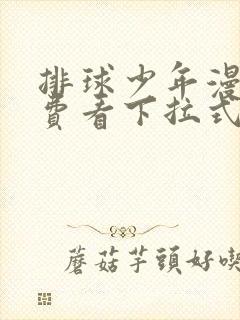 排球少年漫
费看下拉式
蘑菇芋頭好喫